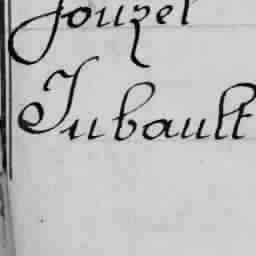 Jouzel
Jubault